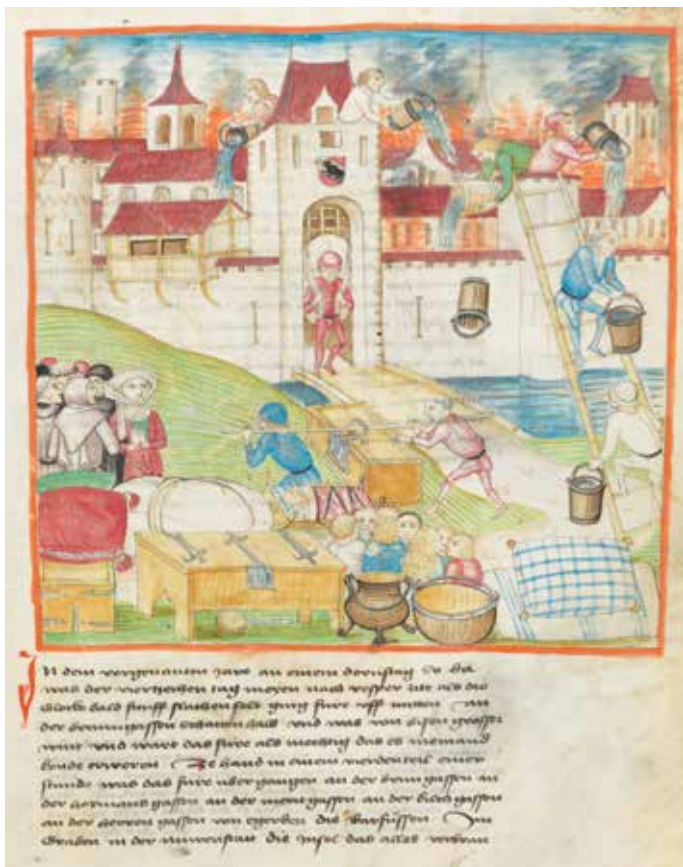 In dem vorgenanten jare an einem donrstag so da
was der vierzechen tag meyen nach vesper zite als die
glock bald fünff slachen solt ging füre uff mitten an
der brunngassen schatten halb und was von bisen grosser
wint und wart das füre als mechtig das es niemand
konde erweren Ze hand in einem vierden teil einer
stunde was das füre übergangen an der brungassen an
der hormans gassen an der gassen an der kilchgassen
an der herren gassen von egerden die barfüssen Am
Graben in der nüwenstatt die jnsel das alles verbran